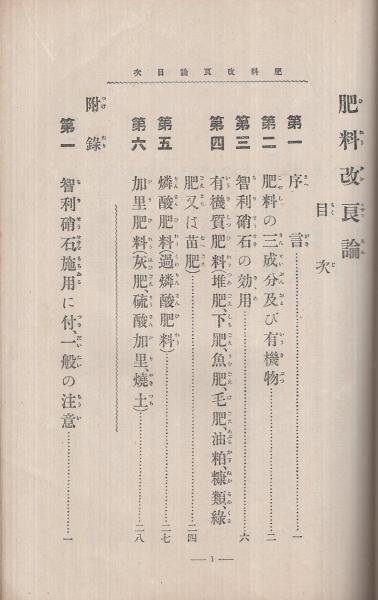 肥料改良論目次
肥料改良論
目次
第一 序言……一
第二 肥料の三成分及び有機物……二
第三 智利硝石の効用……六
第四 有機質肥料(堆肥、下肥、魚肥、毛肥、油粕、糠類、綠
肥又は苗肥)……二四
第五 燐酸肥料(過燐酸肥料)……二七
第六 加里肥料(灰肥、硫酸加里、燒土)……二八
附錄
第一 智利硝石施用に付、一般の注意……一
— 1 —